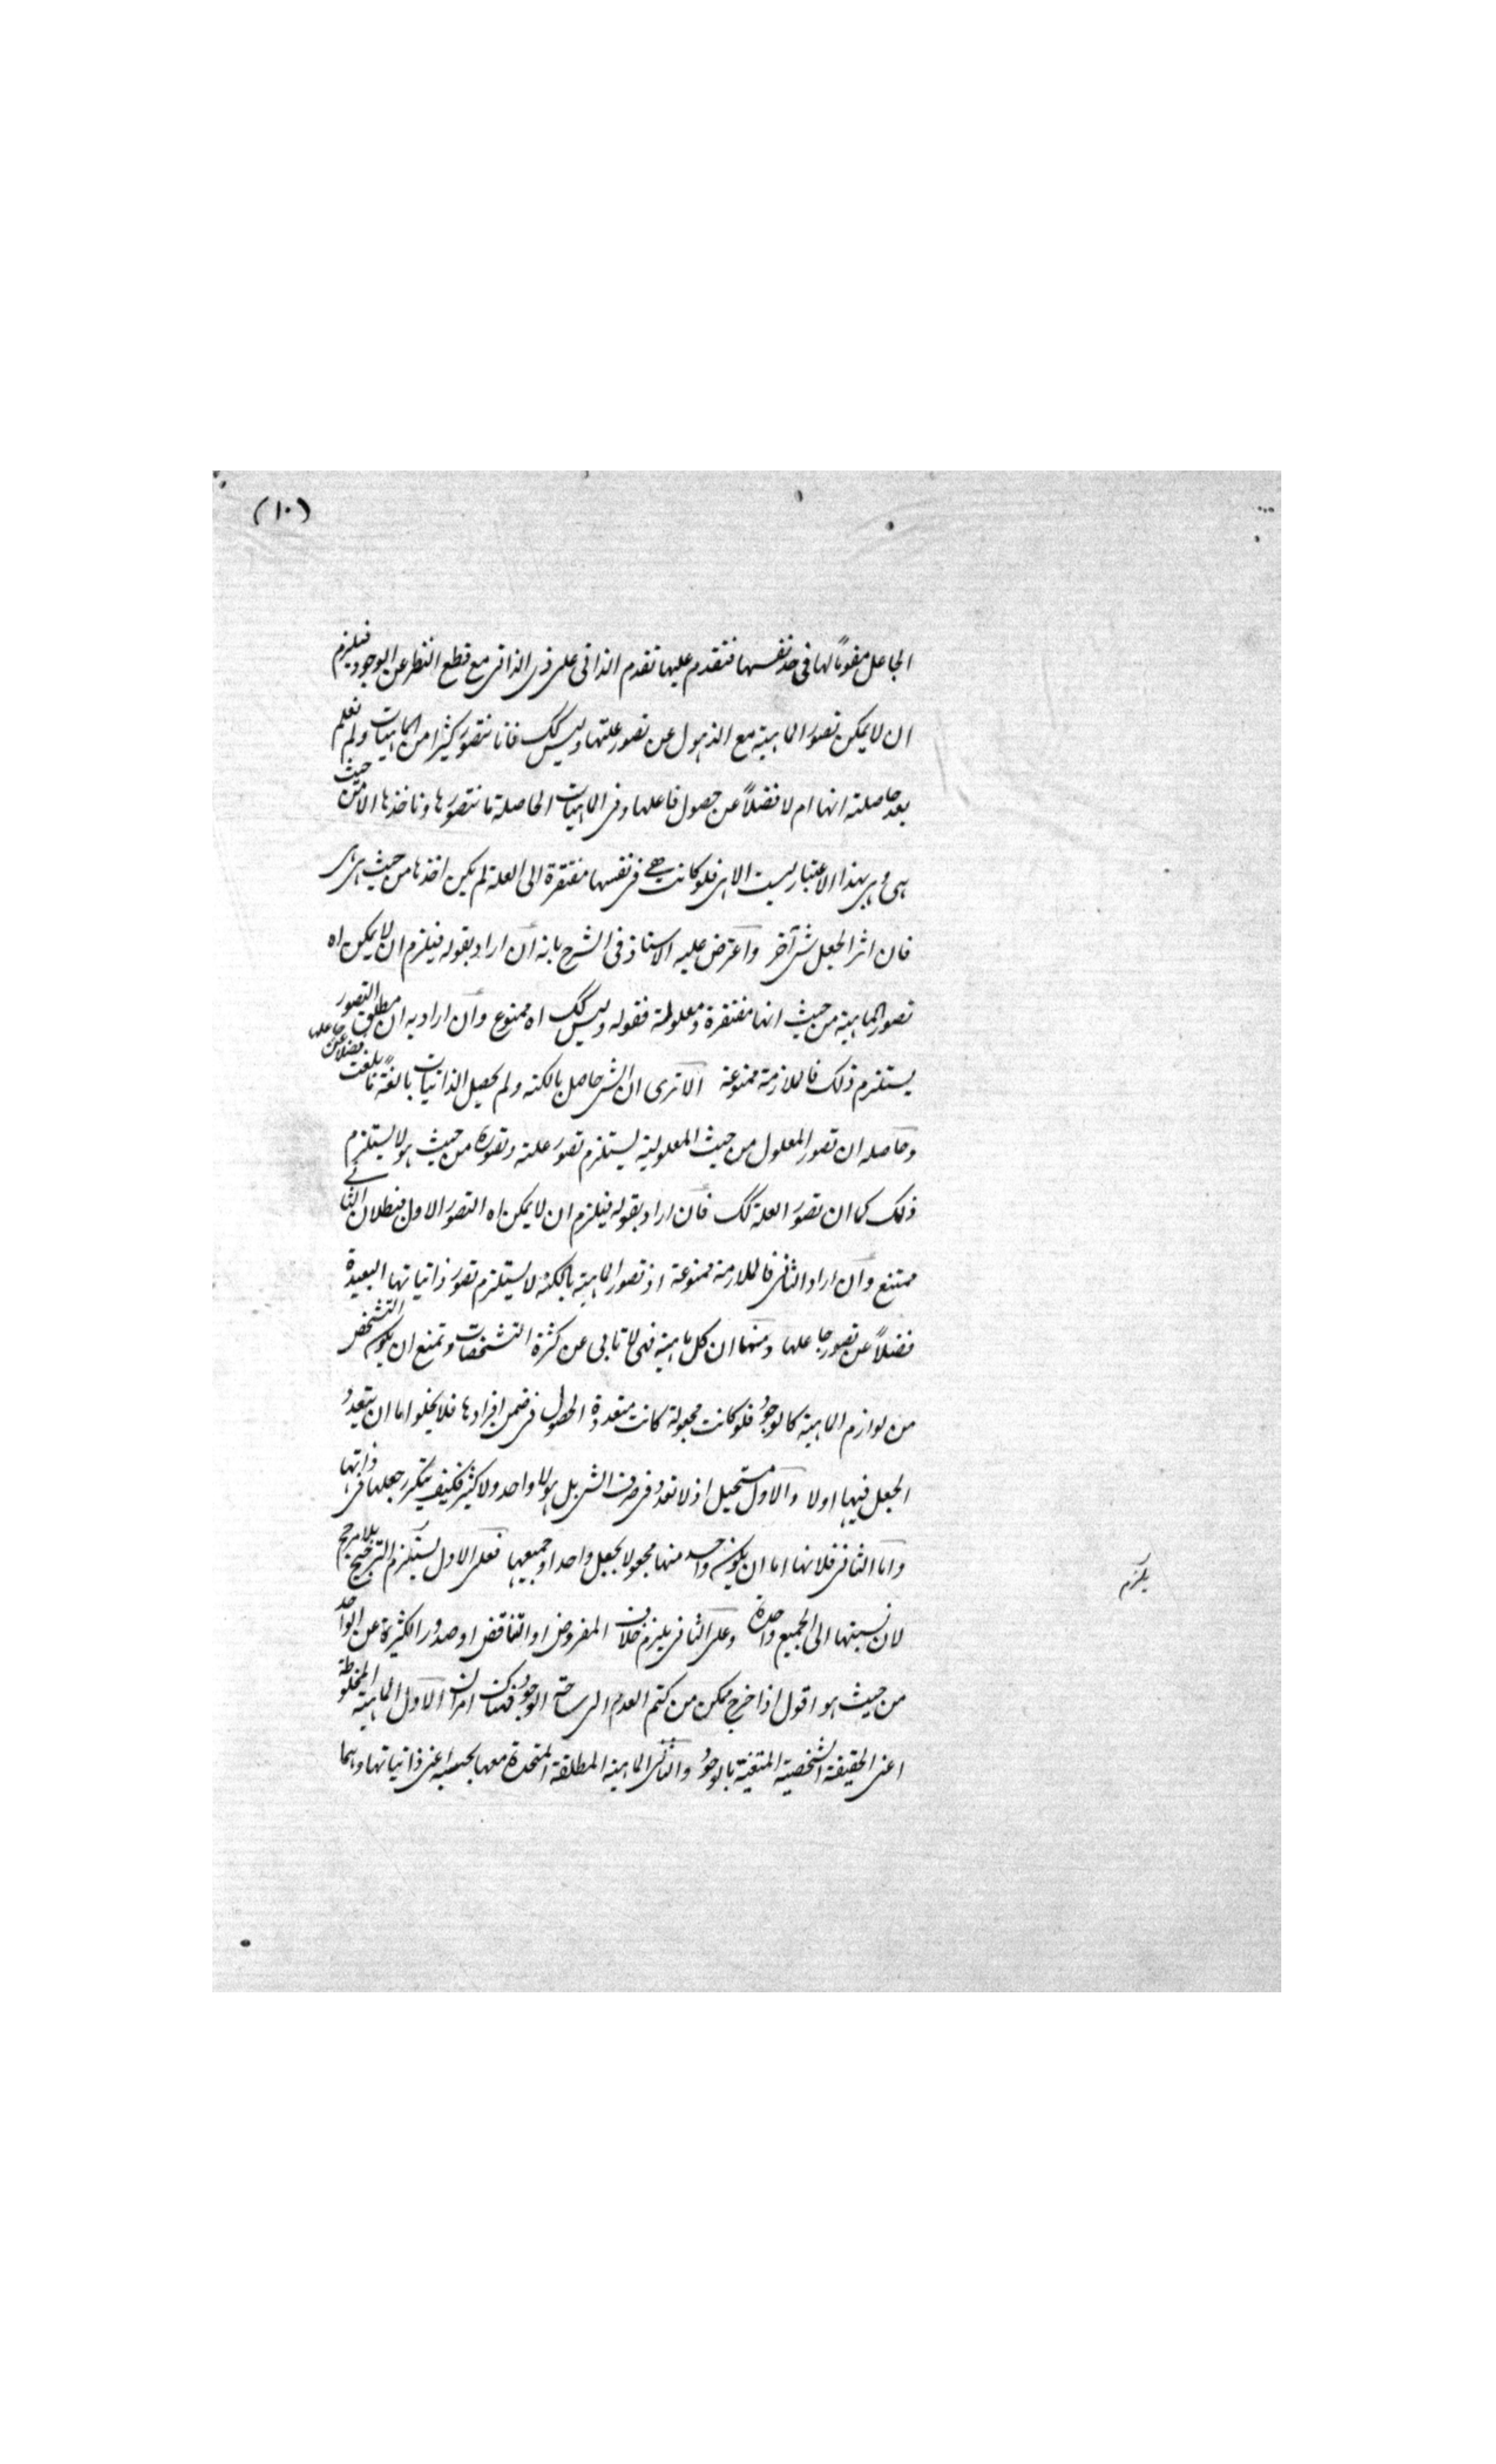 (١٠)
الجاعل مقوماً لها فى حد نفسها فتقدم عليها تقدم الذاتى على ذى الذاتى مع قطع النظر عن الوجود فيلزم
ان لا يمكن تصور الماهية مع الذهول عن تصور علتها وليس كك فانا نتصور كثيرا من الماهيات ولم نعلم
بعد حاصلة انها ام لا فضلاً عن حصول فاعلها وفى الماهيات الحاصلة ما نتصورها وناخذها الا من حيث
هى وهى بهذا الاعتبار ليست الا هى فلو كانت هى فى نفسها مفتقرة الى العلة لم يكن اخذها من حيث هى هى
فان اثر الجعل شئ آخر واعترض عليه الاستاذ فى الشرح بانه ان اراد بقوله فيلزم ان لا يمكن اه
تصور الماهية من حيث انها مفتقرة ومعلولة فقوله وليس كك اه ممنوع وان اراد به ان مطلق التصور
يستلزم ذلك فالملازمة ممنوعة الا ترى ان الشئ حاصل بالكنه ولم يحصل الذاتيات بالغة ما بلغت فضلا عن جاعلها
وحاصله ان تصور المعلول من حيث المعلولية يستلزم تصور علته وتصوره من حيث هو لا يستلزم
ذلك كما ان تصور العلة كك فان اراد بقوله فيلزم ان لا يمكن اه التصور الاول فبطلان الثانے
ممتنع وان اراد الثانى فالملازمة ممنوعة اذ تصور الماهية بالكنه لا يستلزم تصور ذاتياتها البعيدة
فضلاً عن تصور جاعلها ومنها ان كل ماهية فهى لا تابى عن كثرة التشخصات وتمنع ان يكون التشخص
من لوازم الماهية كالوجود فلو كانت مجعولة كانت متعددة الحصول فى ضمن افرادها فلا يخلو اما ان يتعدد
الجعل فيها اولا والاول مستحيل اذ لا تعدد فى صرف الشئ بل هو لا واحد ولا كثير فكيف يتكرر جعلها فى ذاتها
واما الثانى فلانها اما ان يكون واحد منها مجعولا بجعل واحد او جميعها فعلى الاول يستلزم الترجيح بلا مرجح
يلزم
لان نسبتها الى الجميع واحدة وعلى الثانى يلزم خلاف المفروض او التناقض او صدور الكثرة عن الواحد
من حيث هو اقول اذا خرج ممكن من كتم العدم الى ساحة الوجود فهناك امران الاول الماهية المخلوطة
اعنى الحقيقة الشخصية بالوجود والثانى الماهية المطلقة المتحدة معها اعنى ذاتياتها وهما